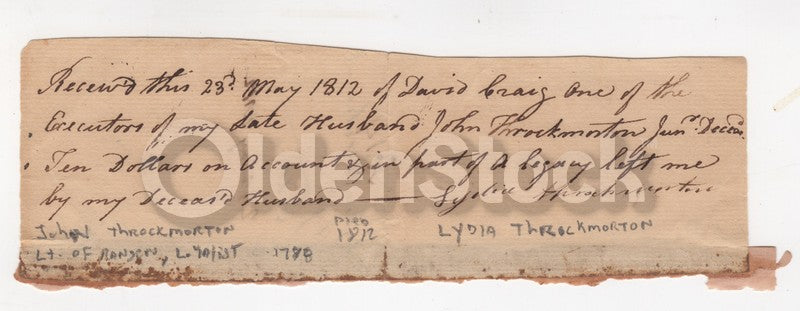 Receiv'd this 23d. May 1812 of David Craig One of the
Executors of my Late Husband John Throckmorton Junr. Deceas.
Ten Dollars on Account & in part of A legacy left me
by my Deceasd Husband — Lydia Throckmorton
OldenStock
JOHN THROCKMORTON
DIED
1812
LYDIA THROCKMORTON
LT. OF LOYALIST 1788